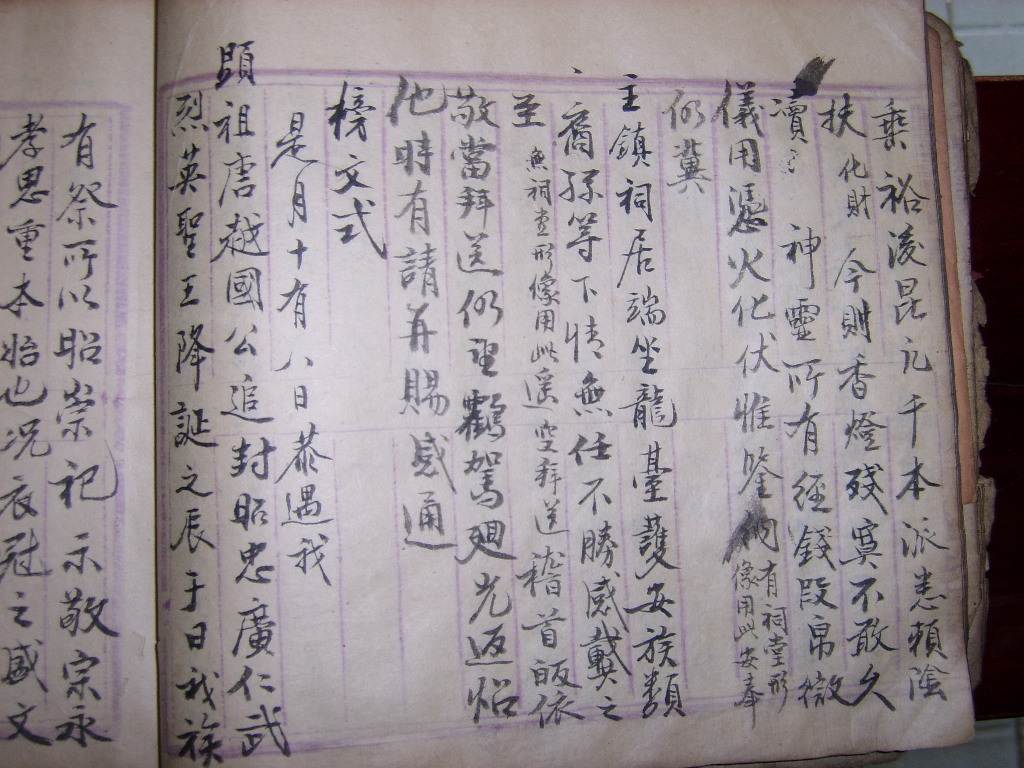 乗裕後昆凢千本派悉頼隂
扶化財 今則香燈殘寞不敢久
瀆 神靈所有經錢段帛徼
有祠堂形
像用此安奉
儀用憑火化伏惟鑒納
仍冀
主鎮祠居端坐龍臺護安族類
裔孫等下情無任不勝感戴之
至 無祠堂形像用此遥空拜送 稽首皈依
敬當拜送仍望鸞駕廻光返炤
他時有請再賜感通
榜文式
是月十有八日恭遇我
顕祖唐越國公追封昭忠廣仁武
烈英聖王降誕之辰于日我族
有祭所以昭崇祀示敬宗永
孝思重本始也况衣冠之盛文